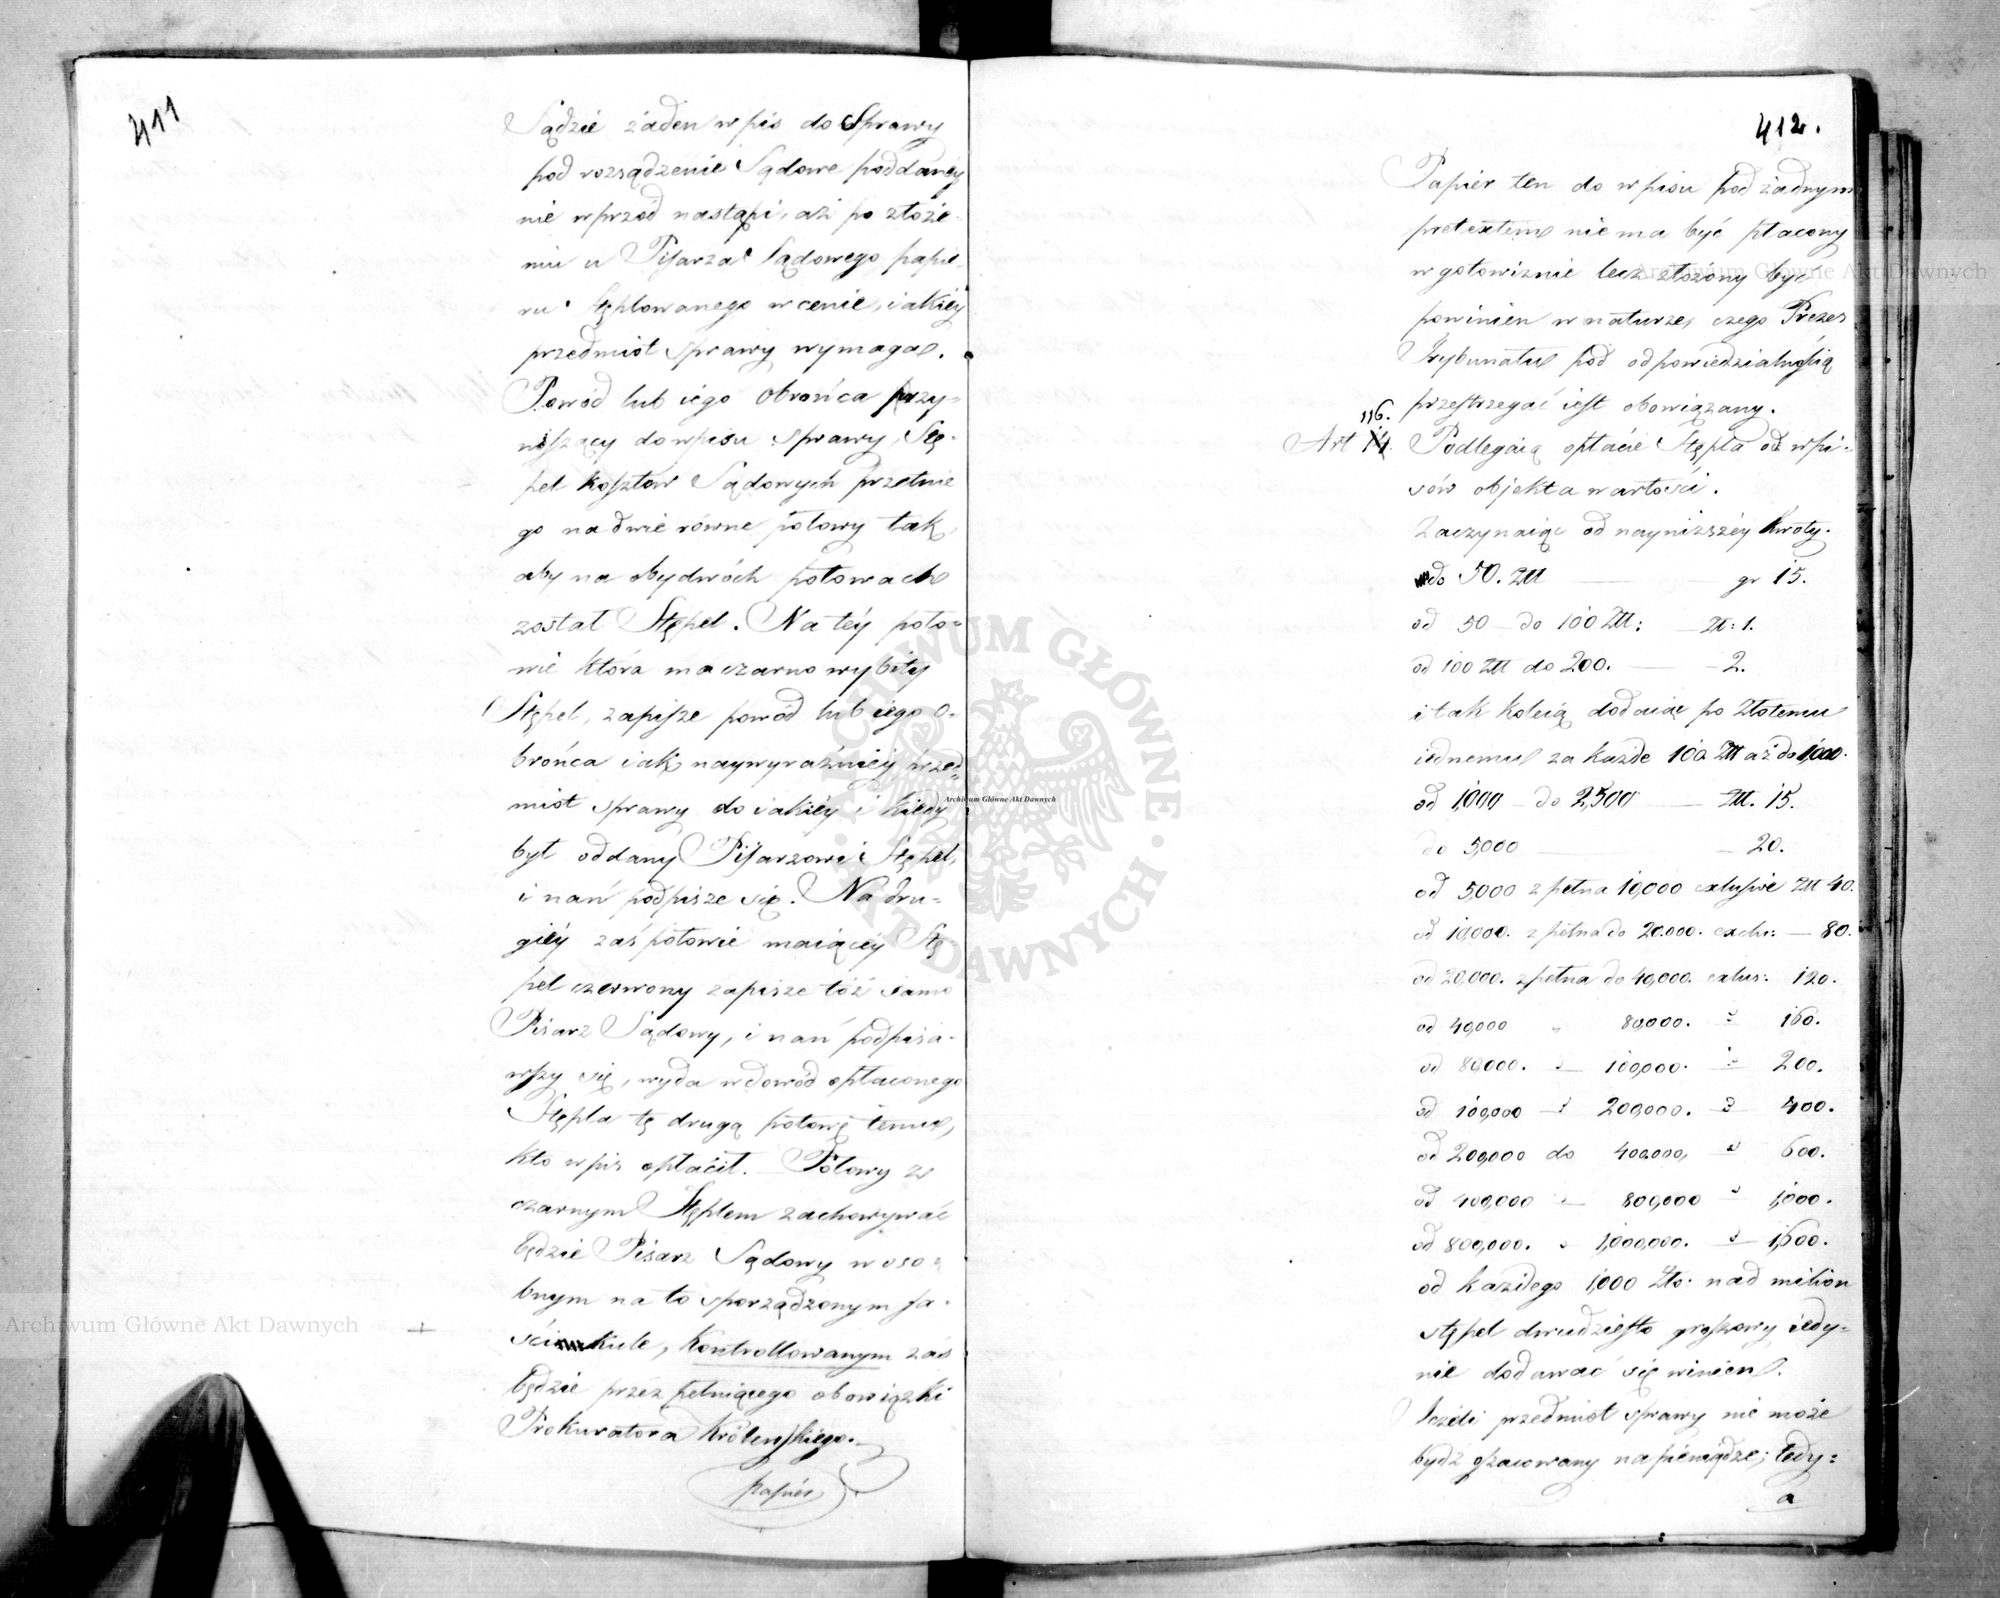 411
Sądzie żaden wpis do Sprawy
pod rozsądzenie Sądowe poddanéy
nie wprzód nastąpi, aż po złoże-
niu u Pisarza Sądowego papie-
ru Stęplowanego w cenie, iakiéy
przedmiot sprawy wymaga.
Powód lub iego obrońca przy-
noszący do wpisu sprawy, Stę-
pel kosztów Sądowych przetnie
go na dwie równe połowy tak,
aby na obydwóch połowach
został Stępel. Na téy poło-
wie która ma czarno wybity
Stępel, zapisze powód lub iego o-
brońca iak naywyraźniéy przed-
miot sprawy do iakiéy i kiedy
był oddany Pisarzowi Stępel,
i nań podpisze się. Na dru-
giéy zaś połowie maiącéy Stę
pel czerwony zapisze tóż samo
Pisarz Sądowy, i nań podpisa-
wszy się, wyda w dowód opłaconego
Stępla tę drugą połowę temu,
kto wpis opłacił. Połowy z
czarnym Stęplem zachowywać
będzie Pisarz Sądowy w oso-
bnym na to sporządzonym fa-
scikule, kontrollowanym zaś
będzie przez pełniącego obowiązki
Prokuratora Królewskiego.
papier
412.
Papier ten do wpisu pod żadnym
pretextem nie ma być płacony
w gotowiznie lecz złożony być
powinien w naturze, czego Prezes
Trybunału pod odpowiedzialnością
przestrzegać iest obowiązany.
116.
Art 14. Podlegaią opłacie Stępla od wpi-
sów objekta wartości.
Zaczynaiąc od nayniższéy kwoty.
do 50. Złł gr 15.
od 50 do 100 Złł: Zł: 1.
od 100 Złł do 200. 2.
i tak koleią dodaiąc po Złotemu
iednemu za każde 100 Złł aż do 1,000.
od 1,000 do 2,500 Złł. 15.
do 5,000 20.
od 5,000 z pełna 10,000 exlusive Złł 40.
od 10,000. z pełna do 20.000. exclu: 80.
od 20,000. z pełna do 40,000. exlus: 120.
od 40,000 " 80,000. 160.
od 80,000. 100,000. 200.
od 100,000 200,000. 400.
od 200,000 do 400,000, 600.
od 400,000 800,000 1,000.
od 800,000. 1,000,000. 1,600.
od każdego 1,000 Zło: nad milion
stępel dwudziesto groszowy iedy-
nie dodawać się winien.
Jeżeli przedmiot sprawy nie może
bydź szacowany na pieniądze; tedy:
a
Archiwum Główne Akt Dawnych
ARCHIWUM GŁÓWNE AKT DAWNYCH
Archiwum Główne Akt Dawnych
Archiwum Główne Akt Dawnych